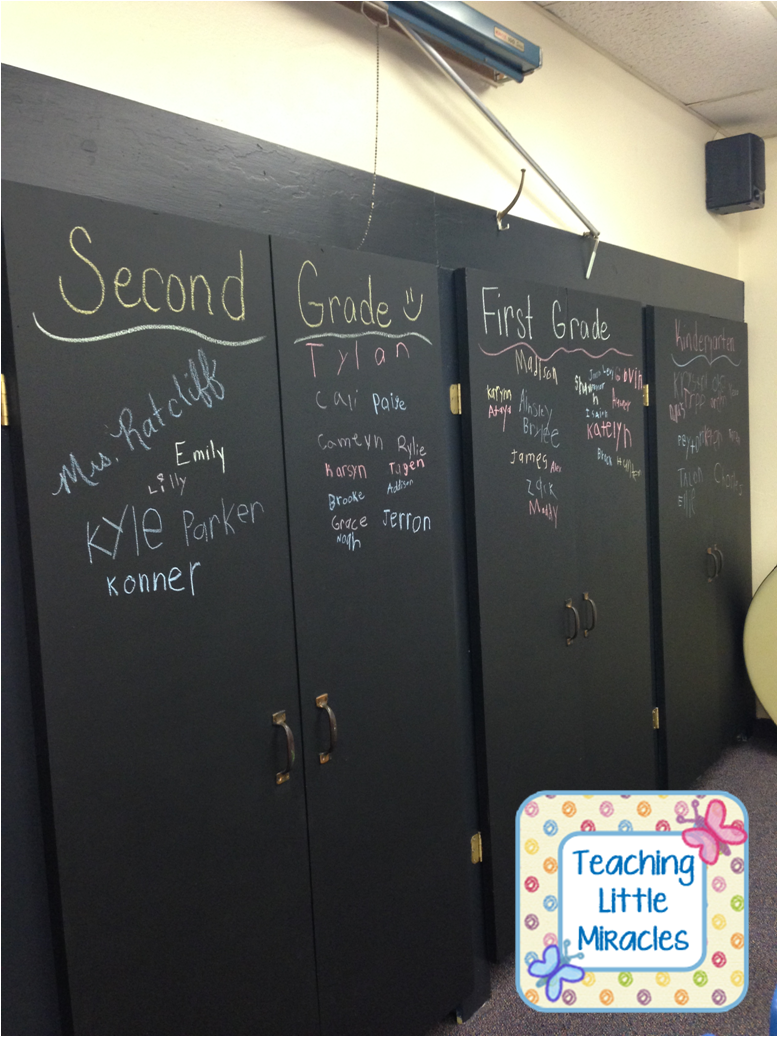 Second
Mrs. Ratcliff
Emily
Lilly
KYlE Parker
Konner
Grade
Tylan
Cali Paige
Camryn Rylie
Karsyn Tagen
Brooke Addison
Grace Jerron
Noah
First Grade
Madison
Karlynn
Ainsley
Brylee
James Alex
Zack
Maddy
Gavin
Isaiah
Katelyn
Brock Hunter
Kindergarten
Peyton
Talon Charles
Teaching
Little
Miracles